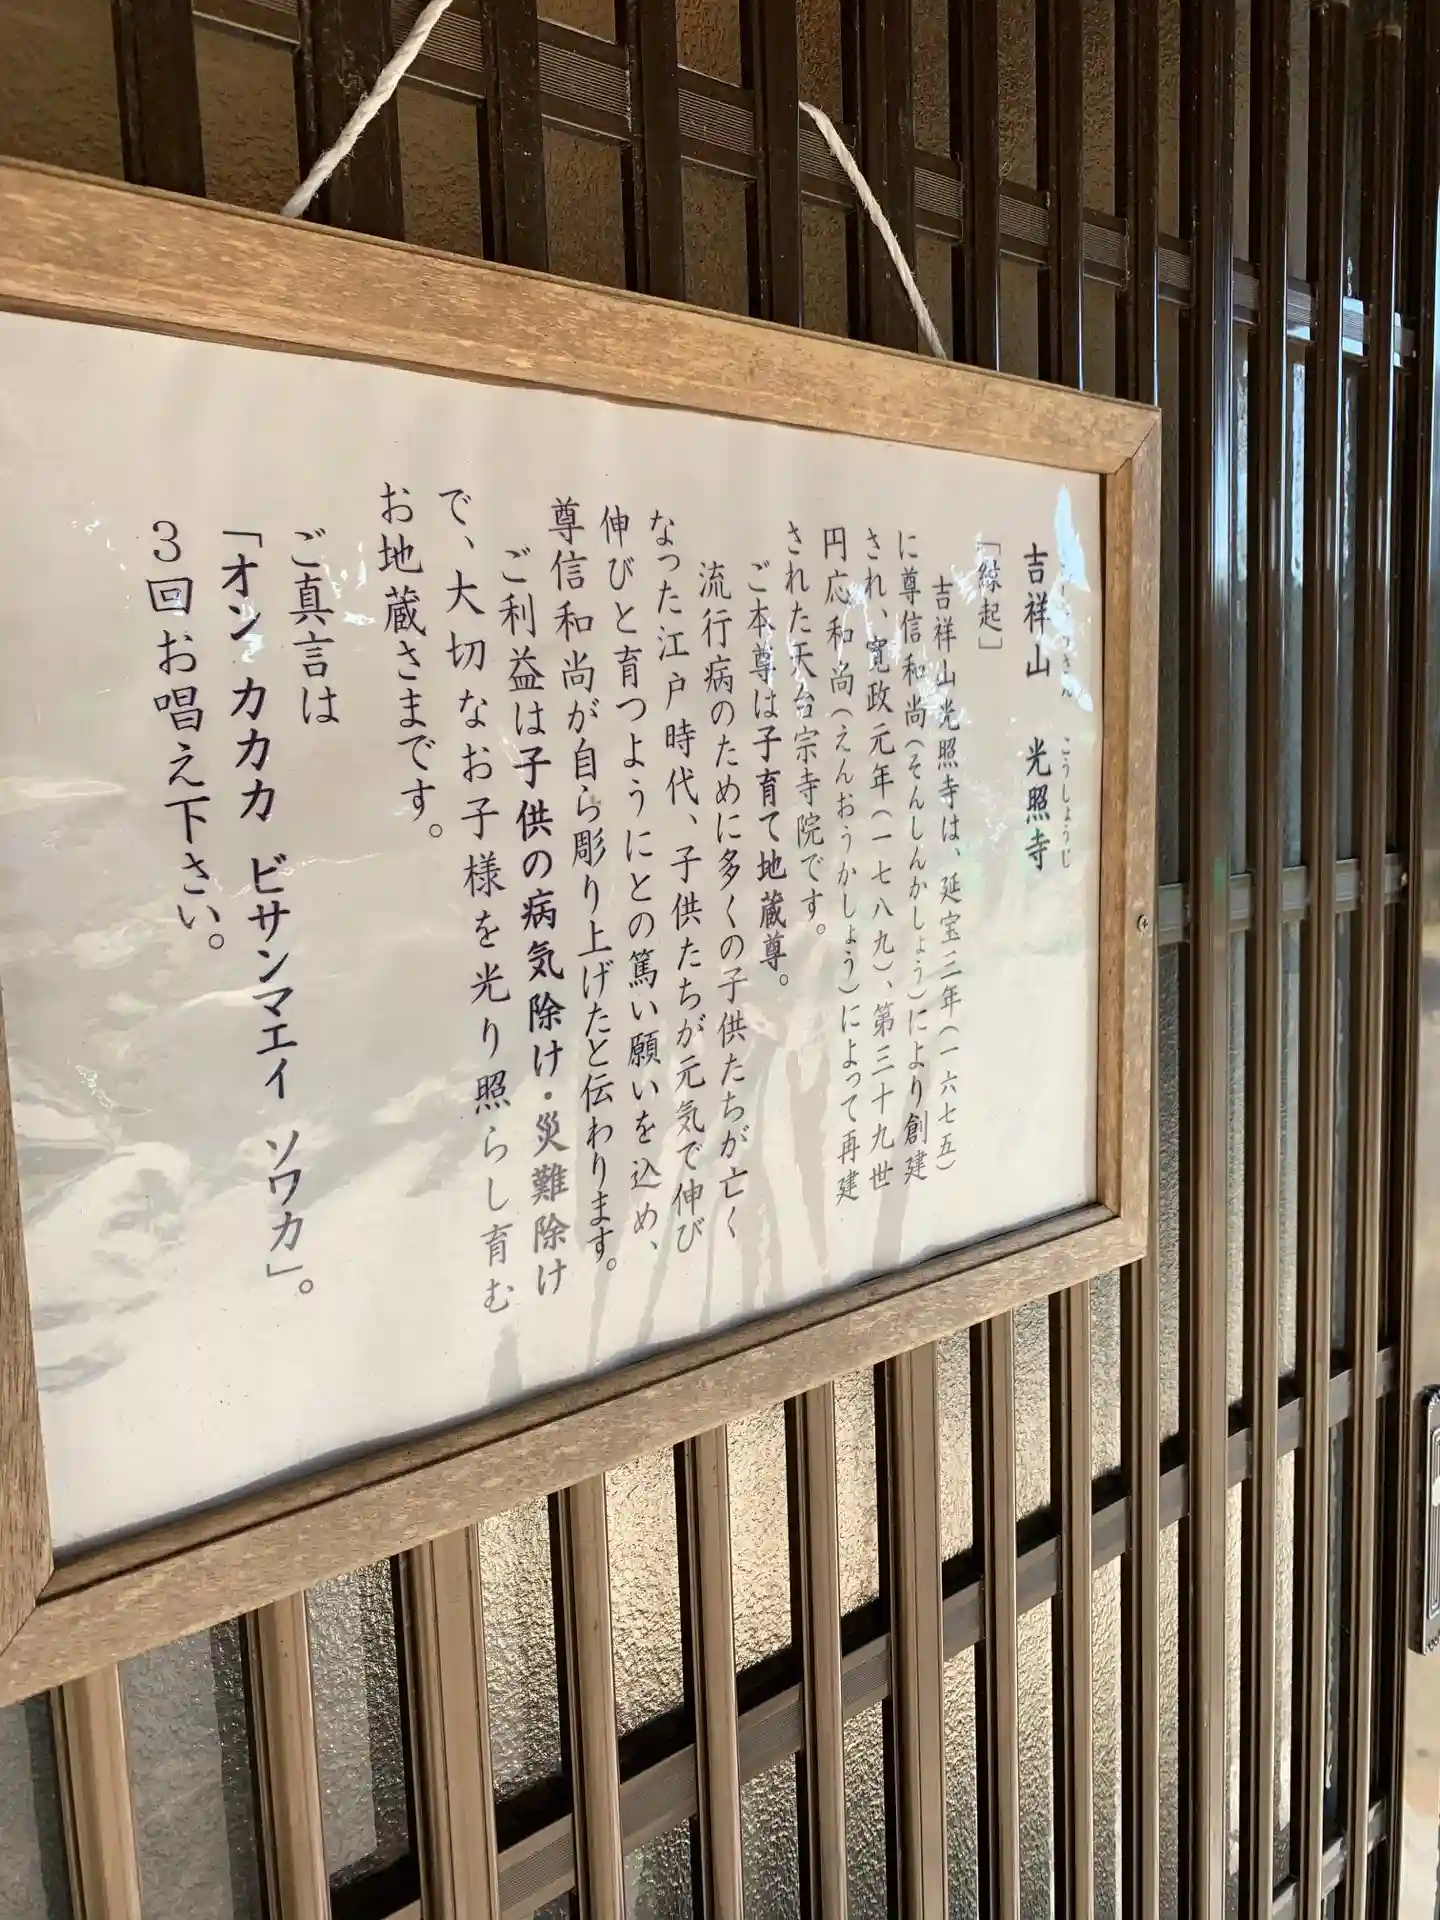 吉祥山　光照寺
こうしょうじ
「縁起」
吉祥山光照寺は、延宝三年(一六七五)
に尊信和尚(そんしんかしょう)により創建
され、寛政元年(一七八九)、第三十九世
円応和尚(えんおうかしょう)によって再建
された天台宗寺院です。
ご本尊は子育て地蔵尊。
流行病のために多くの子供たちが亡く
なった江戸時代、子供たちが元気で伸び
伸びと育つようにとの篤い願いを込め、
尊信和尚が自ら彫り上げたと伝わります。
ご利益は子供の病気除け・災難除け
で、大切なお子様を光り照らし育む
お地蔵さまです。
ご真言は
「オン カカカ ビサンマエイ ソワカ」。
3回お唱え下さい。